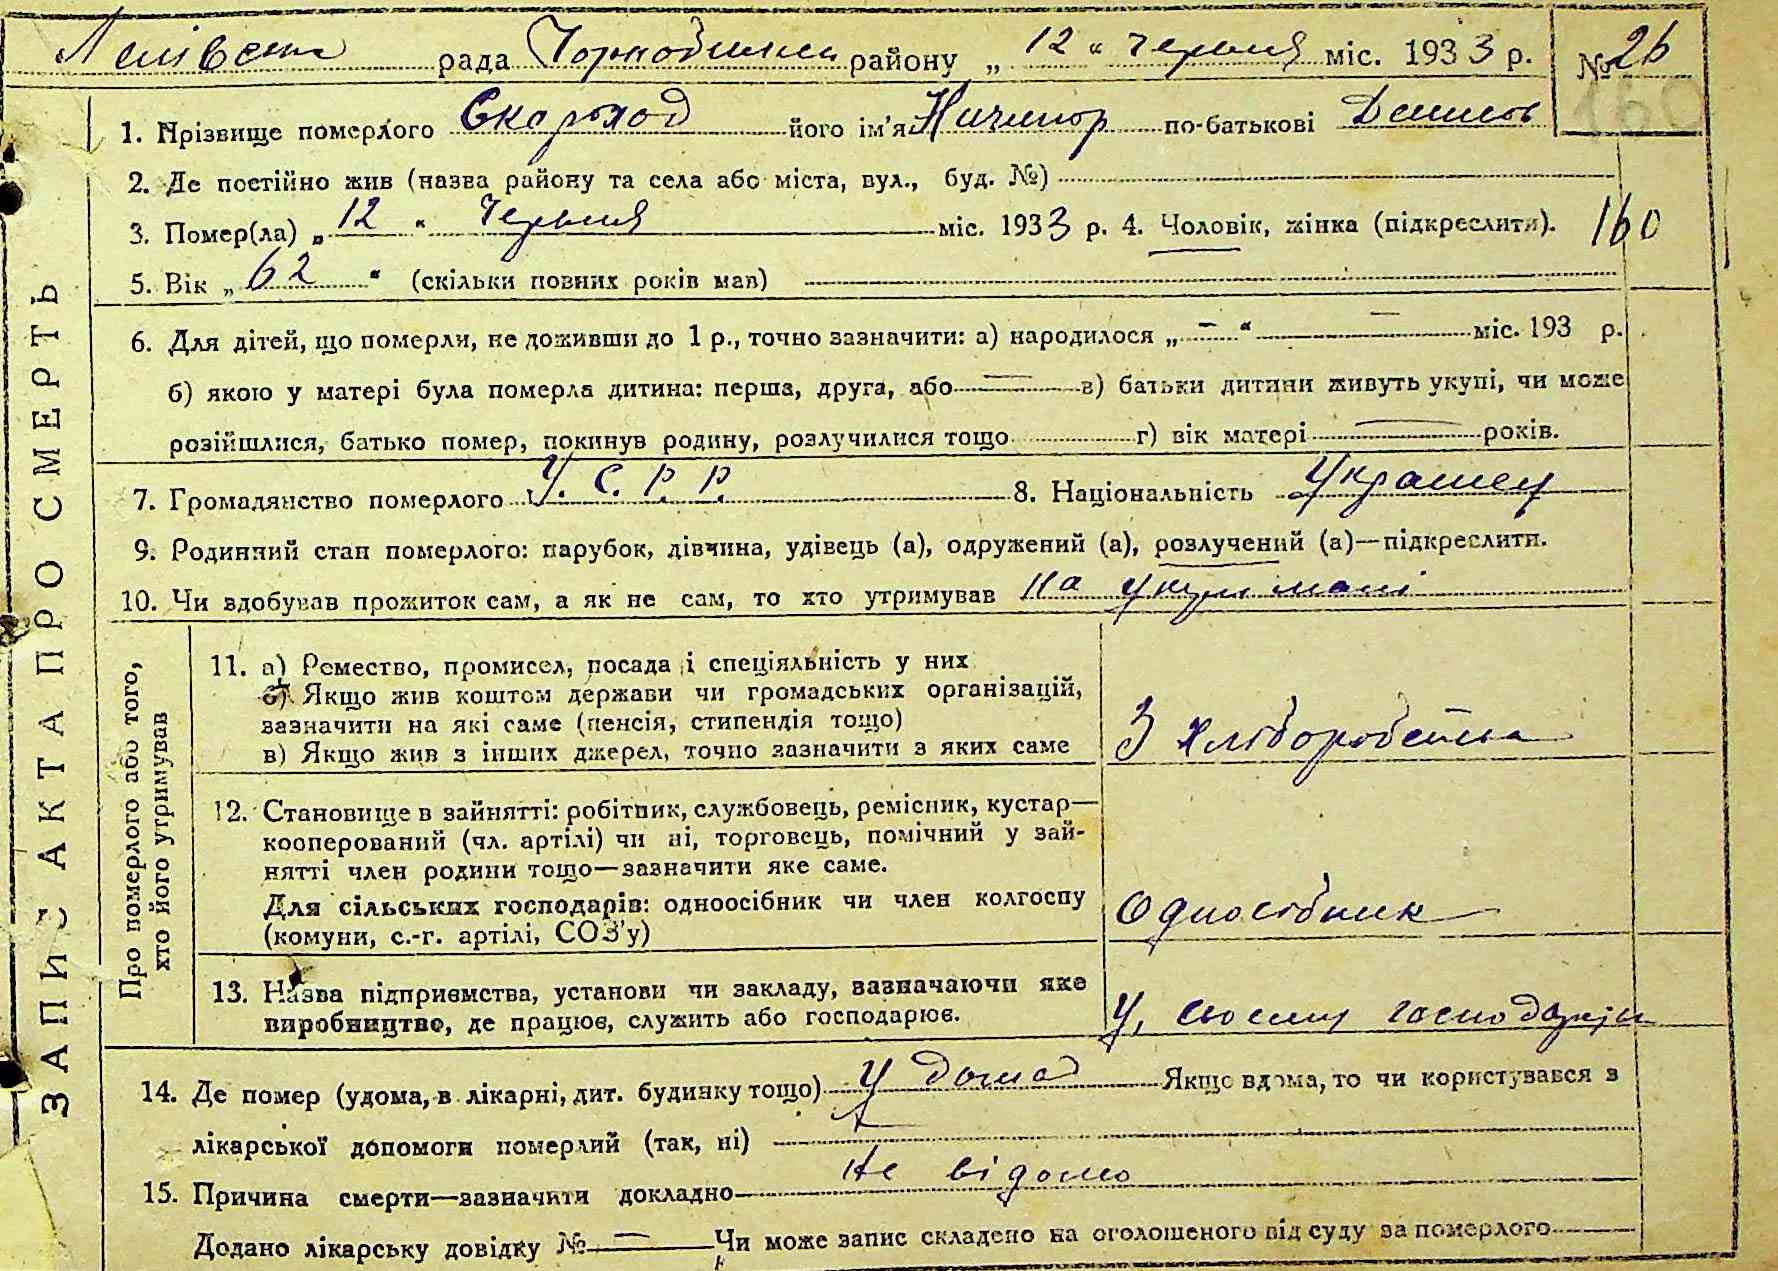 рада району „ 12 “ червня міс. 1933 р. № 26
160
1. Прізвище померлого Скороход його ім'я Ничипор по-батькові Денисов
2. Де постійно жив (назва району та села або міста, вул., буд. №)
3. Помер(ла) „ 12 “ Червня міс. 1933 р. 4. Чоловік, жінка (підкреслити). 160
5. Вік „ 62 “ (скільки повних років мав)
6. Для дітей, що померли, не доживши до 1 р., точно зазначити: а) народилося „ — “ — міс. 193 р.
б) якою у матері була померла дитина: перша, друга, або — в) батьки дитини живуть укупі, чи може
розійшлися, батько помер, покинув родину, розлучилися тощо г) вік матері — років.
7. Громадянство померлого У. С. Р. Р. 8. Національність Украінец
9. Родинний стан померлого: парубок, дівчина, удівець (а), одружений (а), розлучений (а)—підкреслити.
10. Чи здобував прожиток сам, а як не сам, то хто утримував на
ЗАПИС АКТА ПРО СМЕРТЬ
Про померлого або того,
хто його утримував
11. а) Ремество, промисел, посада і спеціяльність у них
б) Якщо жив коштом держави чи громадських організацій,
зазначити на які саме (пенсія, стипендія тощо)
в) Якщо жив з інших джерел, точно зазначити з яких саме
З хліборобства
12. Становище в зайнятті: робітник, службовець, ремісник, кустар—
кооперований (чл. артілі) чи ні, торговець, помічний у зай-
нятті член родини тощо—зазначити яке саме.
Для сільських господарів: одноосібник чи член колгоспу
(комуни, с.-г. артілі, СОЗ'у)
Одноосібник
13. Назва підприємства, установи чи закладу, зазначаючи яке
виробництво, де працює, служить або господарює.
У своєму господарстві
14. Де помер (удома, в лікарні, дит. будинку тощо) У дома Якщо вдома, то чи користувався з
лікарської допомоги померлий (так, ні)
15. Причина смерти—зазначити докладно Не відомо
Додано лікарську довідку № — Чи може запис складено на оголошеного від суду за померлого